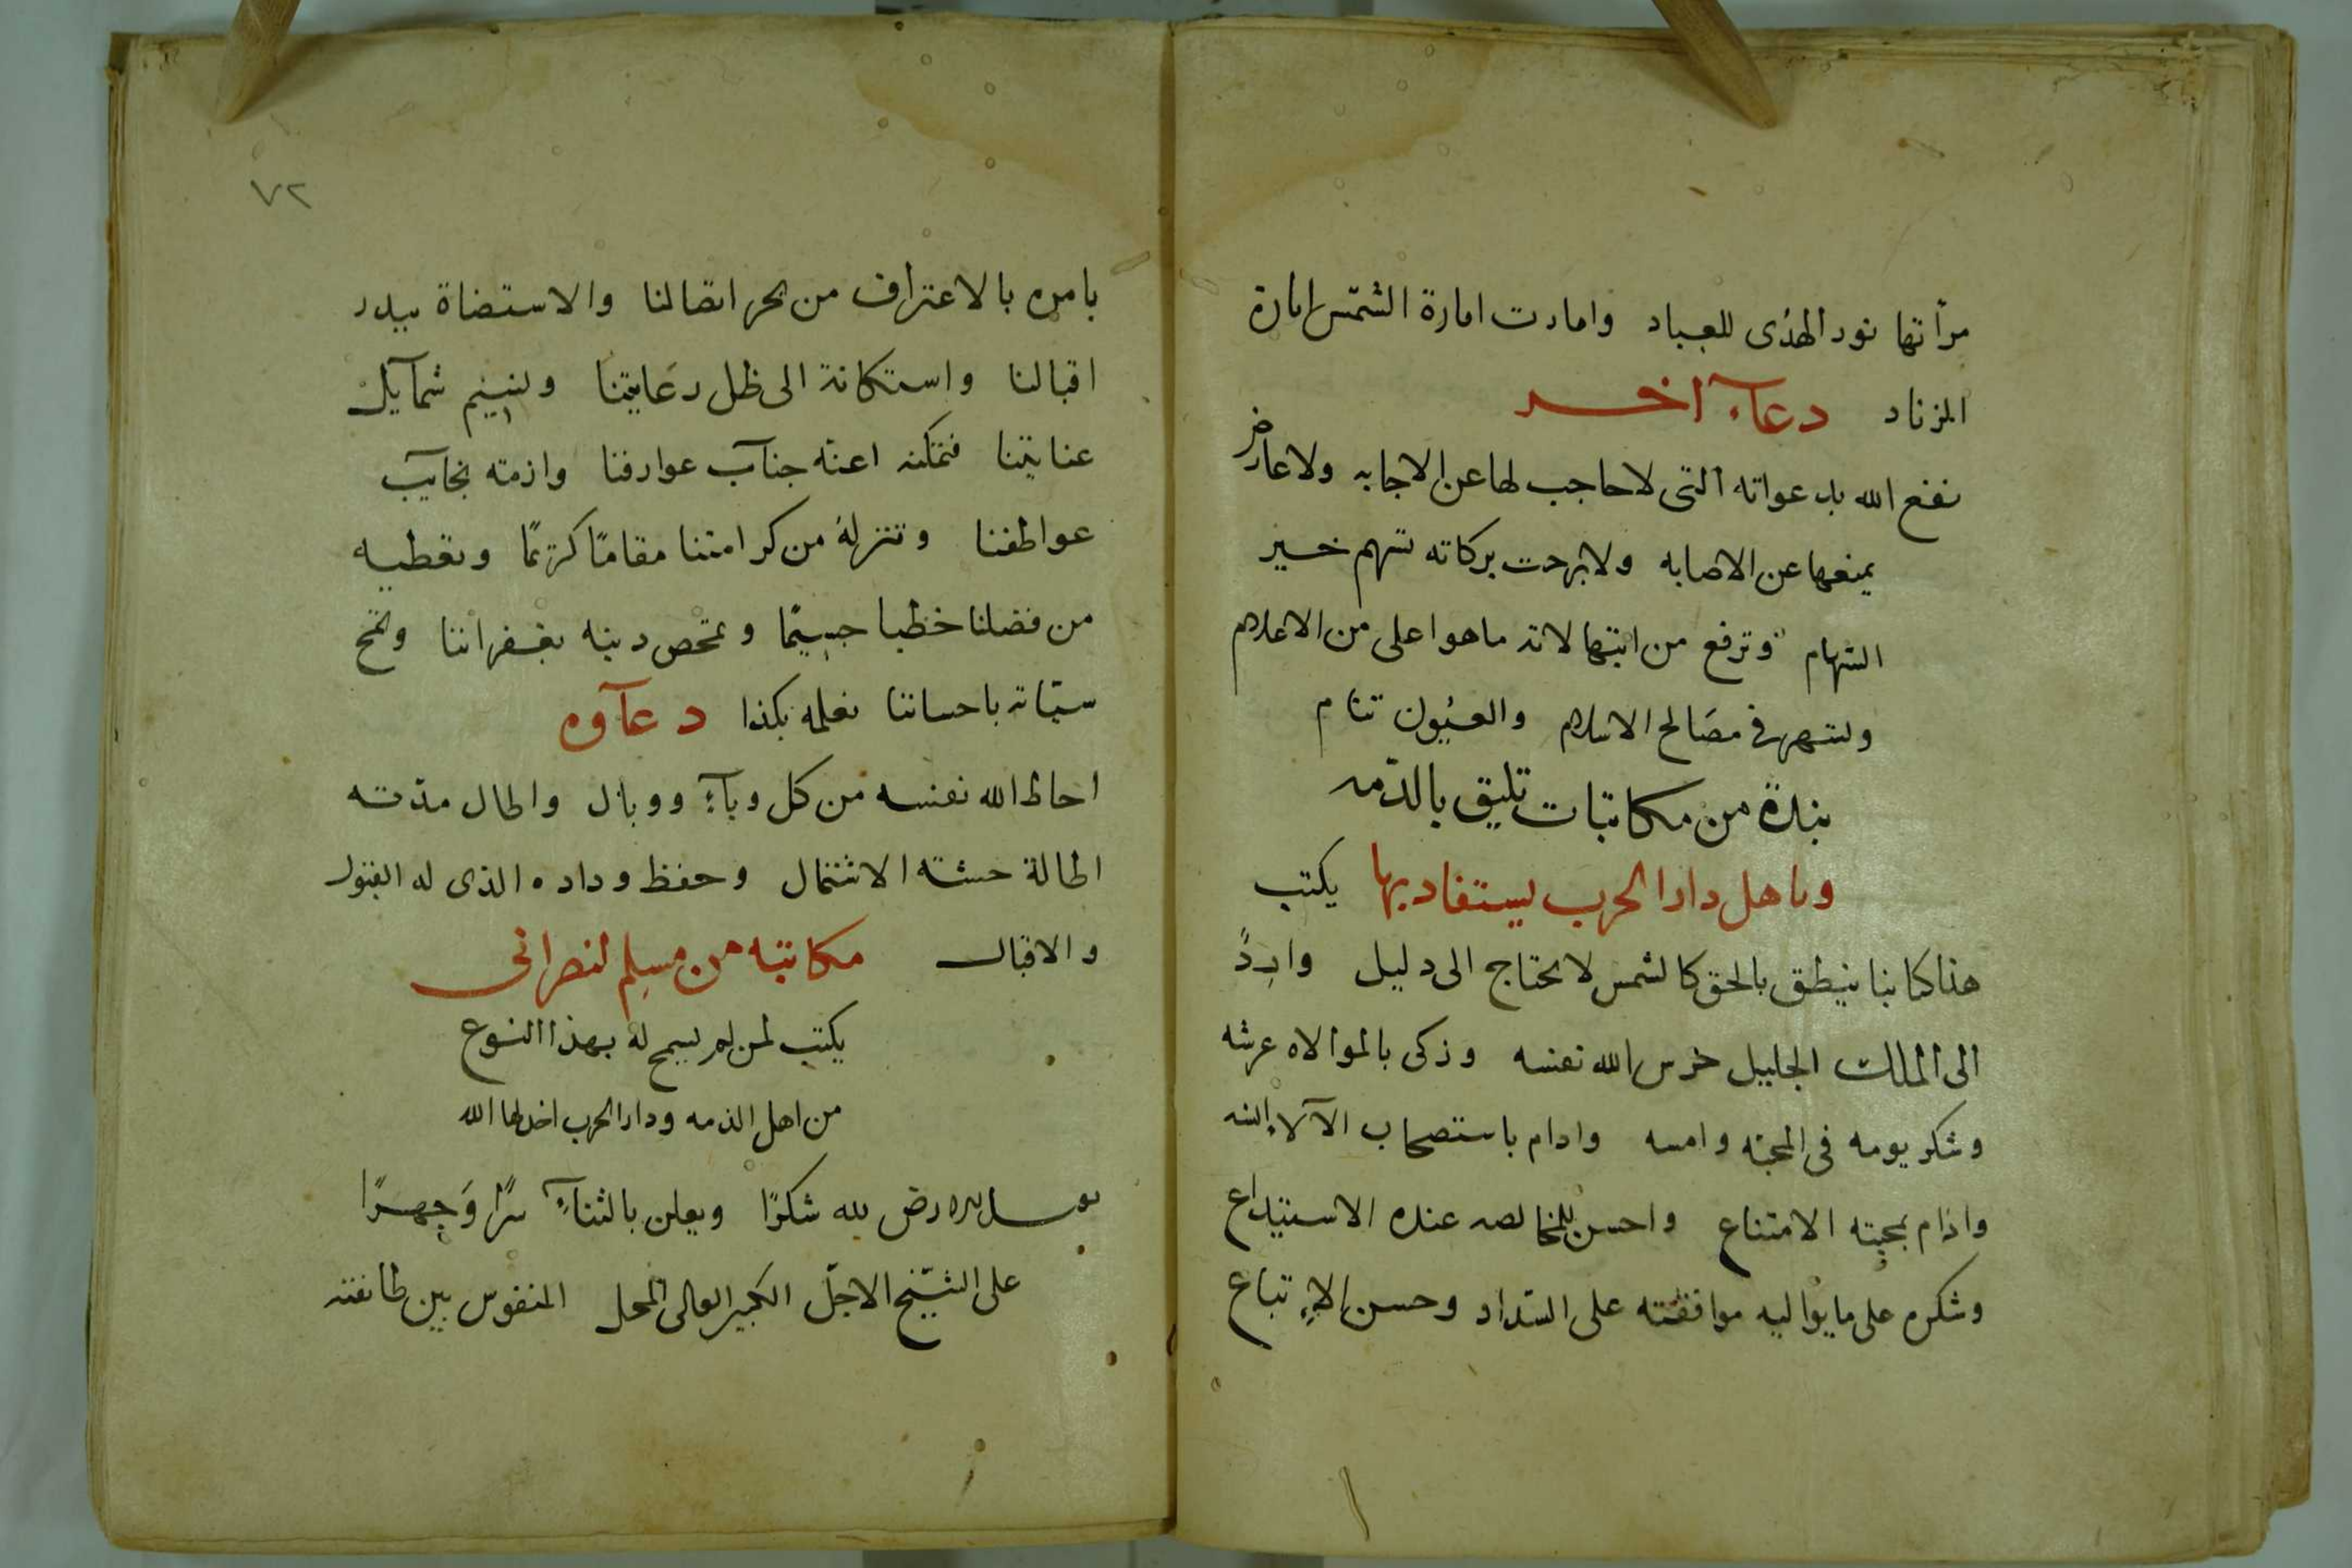 مرأتها نور الهدى للعباد وامارت امارة الشمس امارة
المزناد دعاء آخر
نفع الله بدعواته التى لا حاجب لها عن الاجابه ولا عارض
يمنعها عن الاصابه ولا برحت بركاته تسهم خير
السهام وترفع من ابتهالاته ما هو اعلى من الاعلام
ولتسهر فى مصالح الاسلام والعيون تنام
نبذة من مكاتبات تليق بالذمه
وباهل دار الحرب ليستفاد بها يكتب
هذا كتابنا ينطق بالحق كالشمس لا يحتاج الى دليل وارد
الى الملك الجليل حرس الله نفسه وزكى بالموالاه غرسه
وشكر يومه فى المحبه وامسه وادام باستصحاب الآلاء انسه
وادام بمحبته الامتناع واحسن للمخالصه عنده الاستيداع
وشكره على ما يواليه موافقته على السداد وحسن الاتباع
٧٢
بامره بالاعتراف من بحر اتصالنا والاستضاة ببدر
اقبالنا واستكانة الى ظل رعايتنا ولنسيم شمايل
عنايتنا فتمكنه اعنه جناب عوارفنا وازمته نجايب
عواطفنا وتنزله من كرامتنا مقاما كريما ونعطيه
من فضلنا خطبا جسيما ونمحص دينه بغفراننا ونمح
سيّاته باحساننا نعلمه بكذا دعاوه
احاط الله نفسه من كل وباء ووبال واطال مدته
اطالة حسنه الاشتمال وحفظ وداده الذى له القبول
والاقبال مكاتبه من مسلم لنصرانى
يكتب لمن لم يسمح له بهذا النوع
من اهل الذمه ودار الحرب اخلاها الله
لله شكرًا ويعلن بالثناء سرًا وجهرًا
على الشيخ الاجل الكبير العالى المحل المنفوس بين طائفته